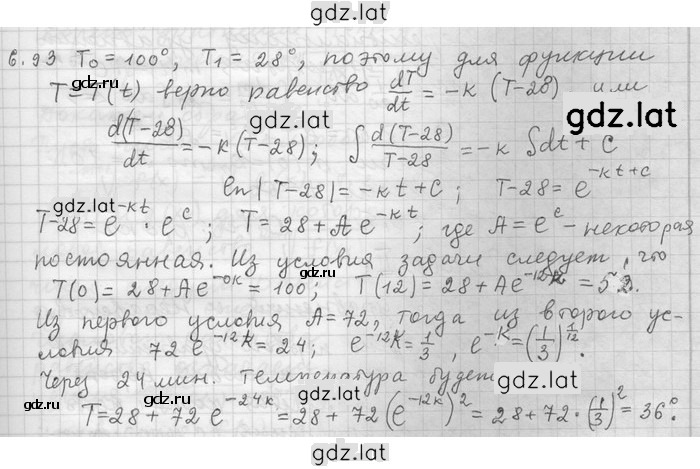 gdz.lat
6.93 T₀ = 100°, T₁ = 28°, поэтому для функции
gdz.lat
T = T(t) верно равенство dT/dt = -к (T-28) или
gdz.lat
gdz.lat
d(T-28)/dt = -к (T-28); ∫ d(T-28)/(T-28) = -к ∫dt + C
ln|T-28| = -кt+C; T-28 = e^(-кt+c)
gdz.lat
T-28 = e^(-кt) · e^c; T = 28 + A e^(-кt); где A = e^c - некоторая
постоянная. Из условия задачи следует, что
T(0) = 28 + Ae^(-0к) = 100; T(12) = 28 + Ae^(-12к) = 52.
Из первого условия A = 72, тогда из второго ус-
gdz.lat
ловия 72 e^(-12к) = 24; e^(-12к) = 1/3, e^(-к) = (1/3)^(1/12).
gdz.lat
Через 24 мин. температура будет
gdz.lat
T = 28 + 72 e^(-24к) = 28 + 72 (e^(-12к))^2 = 28 + 72 · (1/3)^2 = 36°.
gdz.lat